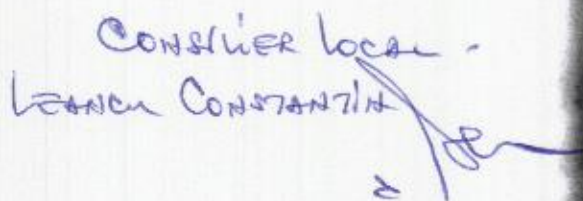 CONSILIER LOCAL -
LEANCU CONSTANTIN